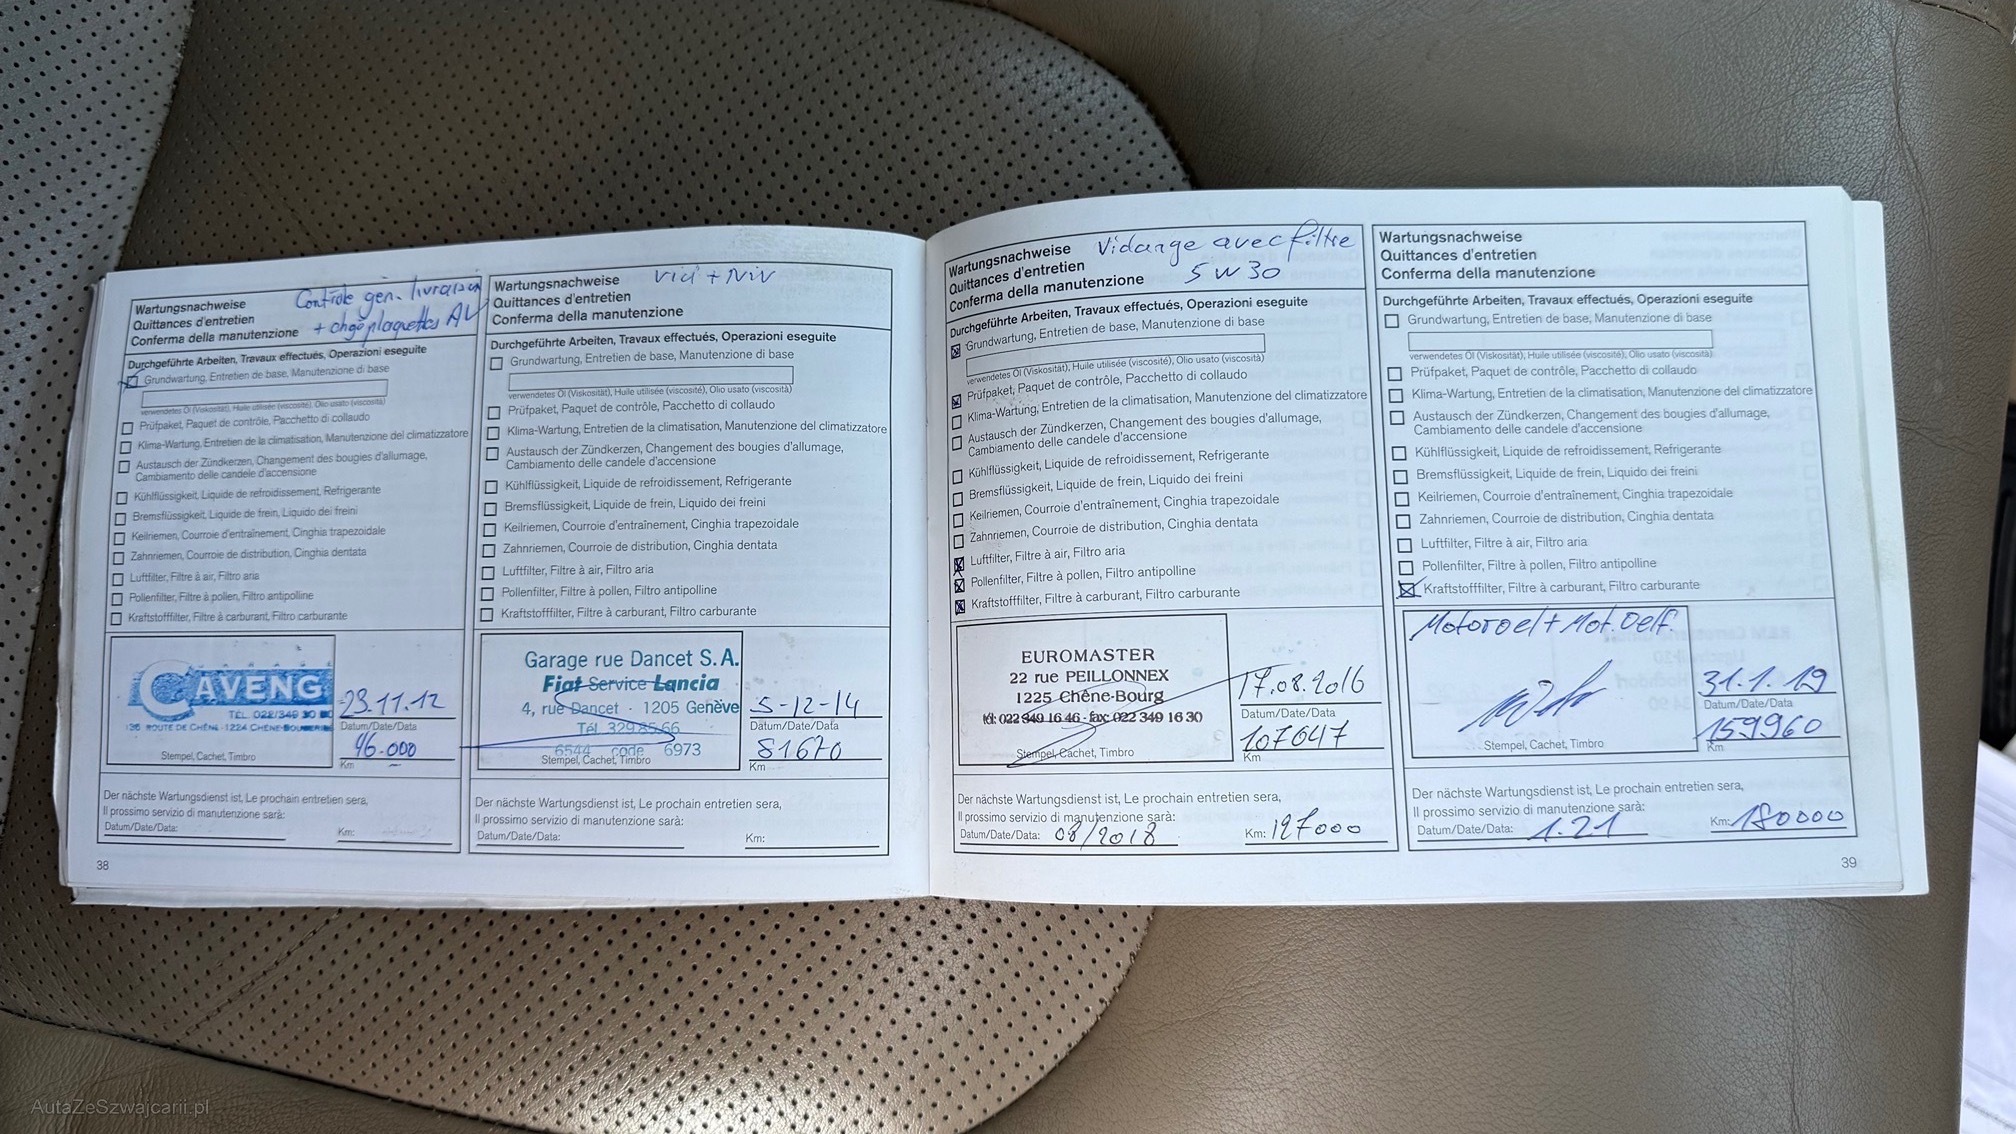 Wartungsnachweise
Quittances d'entretien
Conferma della manutenzione
Contrôle gén. livraison
+ chgé plaquettes AV
Durchgeführte Arbeiten, Travaux effectués, Operazioni eseguite
Grundwartung, Entretien de base, Manutenzione di base
verwendetes Öl (Viskosität), Huile utilisée (viscosité), Olio usato (viscosità)
Prüfpaket, Paquet de contrôle, Pacchetto di collaudo
Klima-Wartung, Entretien de la climatisation, Manutenzione del climatizzatore
Austausch der Zündkerzen, Changement des bougies d'allumage,
Cambiamento delle candele d'accensione
Kühlflüssigkeit, Liquide de refroidissement, Refrigerante
Bremsflüssigkeit, Liquide de frein, Liquido dei freini
Keilriemen, Courroie d'entraînement, Cinghia trapezoidale
Zahnriemen, Courroie de distribution, Cinghia dentata
Luftfilter, Filtre à air, Filtro aria
Pollenfilter, Filtre à pollen, Filtro antipolline
Kraftstofffilter, Filtre à carburant, Filtro carburante
CAVENG
TÉL. 022/349 30 80
136 ROUTE DE CHÊNE - 1224 CHÊNE-BOUGERIES
Stempel, Cachet, Timbro
23.11.12
Datum/Date/Data
46.000
Km
Der nächste Wartungsdienst ist, Le prochain entretien sera,
Il prossimo servizio di manutenzione sarà:
Datum/Date/Data:
Km:
38
Wartungsnachweise
Quittances d'entretien
Conferma della manutenzione
Durchgeführte Arbeiten, Travaux effectués, Operazioni eseguite
Grundwartung, Entretien de base, Manutenzione di base
verwendetes Öl (Viskosität), Huile utilisée (viscosité), Olio usato (viscosità)
Prüfpaket, Paquet de contrôle, Pacchetto di collaudo
Klima-Wartung, Entretien de la climatisation, Manutenzione del climatizzatore
Austausch der Zündkerzen, Changement des bougies d'allumage,
Cambiamento delle candele d'accensione
Kühlflüssigkeit, Liquide de refroidissement, Refrigerante
Bremsflüssigkeit, Liquide de frein, Liquido dei freini
Keilriemen, Courroie d'entraînement, Cinghia trapezoidale
Zahnriemen, Courroie de distribution, Cinghia dentata
Luftfilter, Filtre à air, Filtro aria
Pollenfilter, Filtre à pollen, Filtro antipolline
Kraftstofffilter, Filtre à carburant, Filtro carburante
Garage rue Dancet S.A.
Fiat Service Lancia
4, rue Dancet · 1205 Genève
Tél. 329 85 66
6544 code 6973
Stempel, Cachet, Timbro
5-12-14
Datum/Date/Data
81670
Km
Der nächste Wartungsdienst ist, Le prochain entretien sera,
Il prossimo servizio di manutenzione sarà:
Datum/Date/Data:
Km:
Wartungsnachweise
Quittances d'entretien
Conferma della manutenzione
Vidange avec filtre
5W30
Durchgeführte Arbeiten, Travaux effectués, Operazioni eseguite
Grundwartung, Entretien de base, Manutenzione di base
verwendetes Öl (Viskosität), Huile utilisée (viscosité), Olio usato (viscosità)
Prüfpaket, Paquet de contrôle, Pacchetto di collaudo
Klima-Wartung, Entretien de la climatisation, Manutenzione del climatizzatore
Austausch der Zündkerzen, Changement des bougies d'allumage,
Cambiamento delle candele d'accensione
Kühlflüssigkeit, Liquide de refroidissement, Refrigerante
Bremsflüssigkeit, Liquide de frein, Liquido dei freini
Keilriemen, Courroie d'entraînement, Cinghia trapezoidale
Zahnriemen, Courroie de distribution, Cinghia dentata
Luftfilter, Filtre à air, Filtro aria
Pollenfilter, Filtre à pollen, Filtro antipolline
Kraftstofffilter, Filtre à carburant, Filtro carburante
EUROMASTER
22 rue PEILLONNEX
1225 Chêne-Bourg
tél: 022 349 16 46 - fax: 022 349 16 30
Stempel, Cachet, Timbro
17.08.2016
Datum/Date/Data
107047
Km
Der nächste Wartungsdienst ist, Le prochain entretien sera,
Il prossimo servizio di manutenzione sarà:
Datum/Date/Data: 08/2018
Km: 127000
Wartungsnachweise
Quittances d'entretien
Conferma della manutenzione
Durchgeführte Arbeiten, Travaux effectués, Operazioni eseguite
Grundwartung, Entretien de base, Manutenzione di base
verwendetes Öl (Viskosität), Huile utilisée (viscosité), Olio usato (viscosità)
Prüfpaket, Paquet de contrôle, Pacchetto di collaudo
Klima-Wartung, Entretien de la climatisation, Manutenzione del climatizzatore
Austausch der Zündkerzen, Changement des bougies d'allumage,
Cambiamento delle candele d'accensione
Kühlflüssigkeit, Liquide de refroidissement, Refrigerante
Bremsflüssigkeit, Liquide de frein, Liquido dei freini
Keilriemen, Courroie d'entraînement, Cinghia trapezoidale
Zahnriemen, Courroie de distribution, Cinghia dentata
Luftfilter, Filtre à air, Filtro aria
Pollenfilter, Filtre à pollen, Filtro antipolline
Kraftstofffilter, Filtre à carburant, Filtro carburante
Motoroel + Mot. Oelf.
Stempel, Cachet, Timbro
31.1.19
Datum/Date/Data
159960
Km
Der nächste Wartungsdienst ist, Le prochain entretien sera,
Il prossimo servizio di manutenzione sarà:
Datum/Date/Data: 1.21
Km: 180000
39
AutaZeSzwajcarii.pl